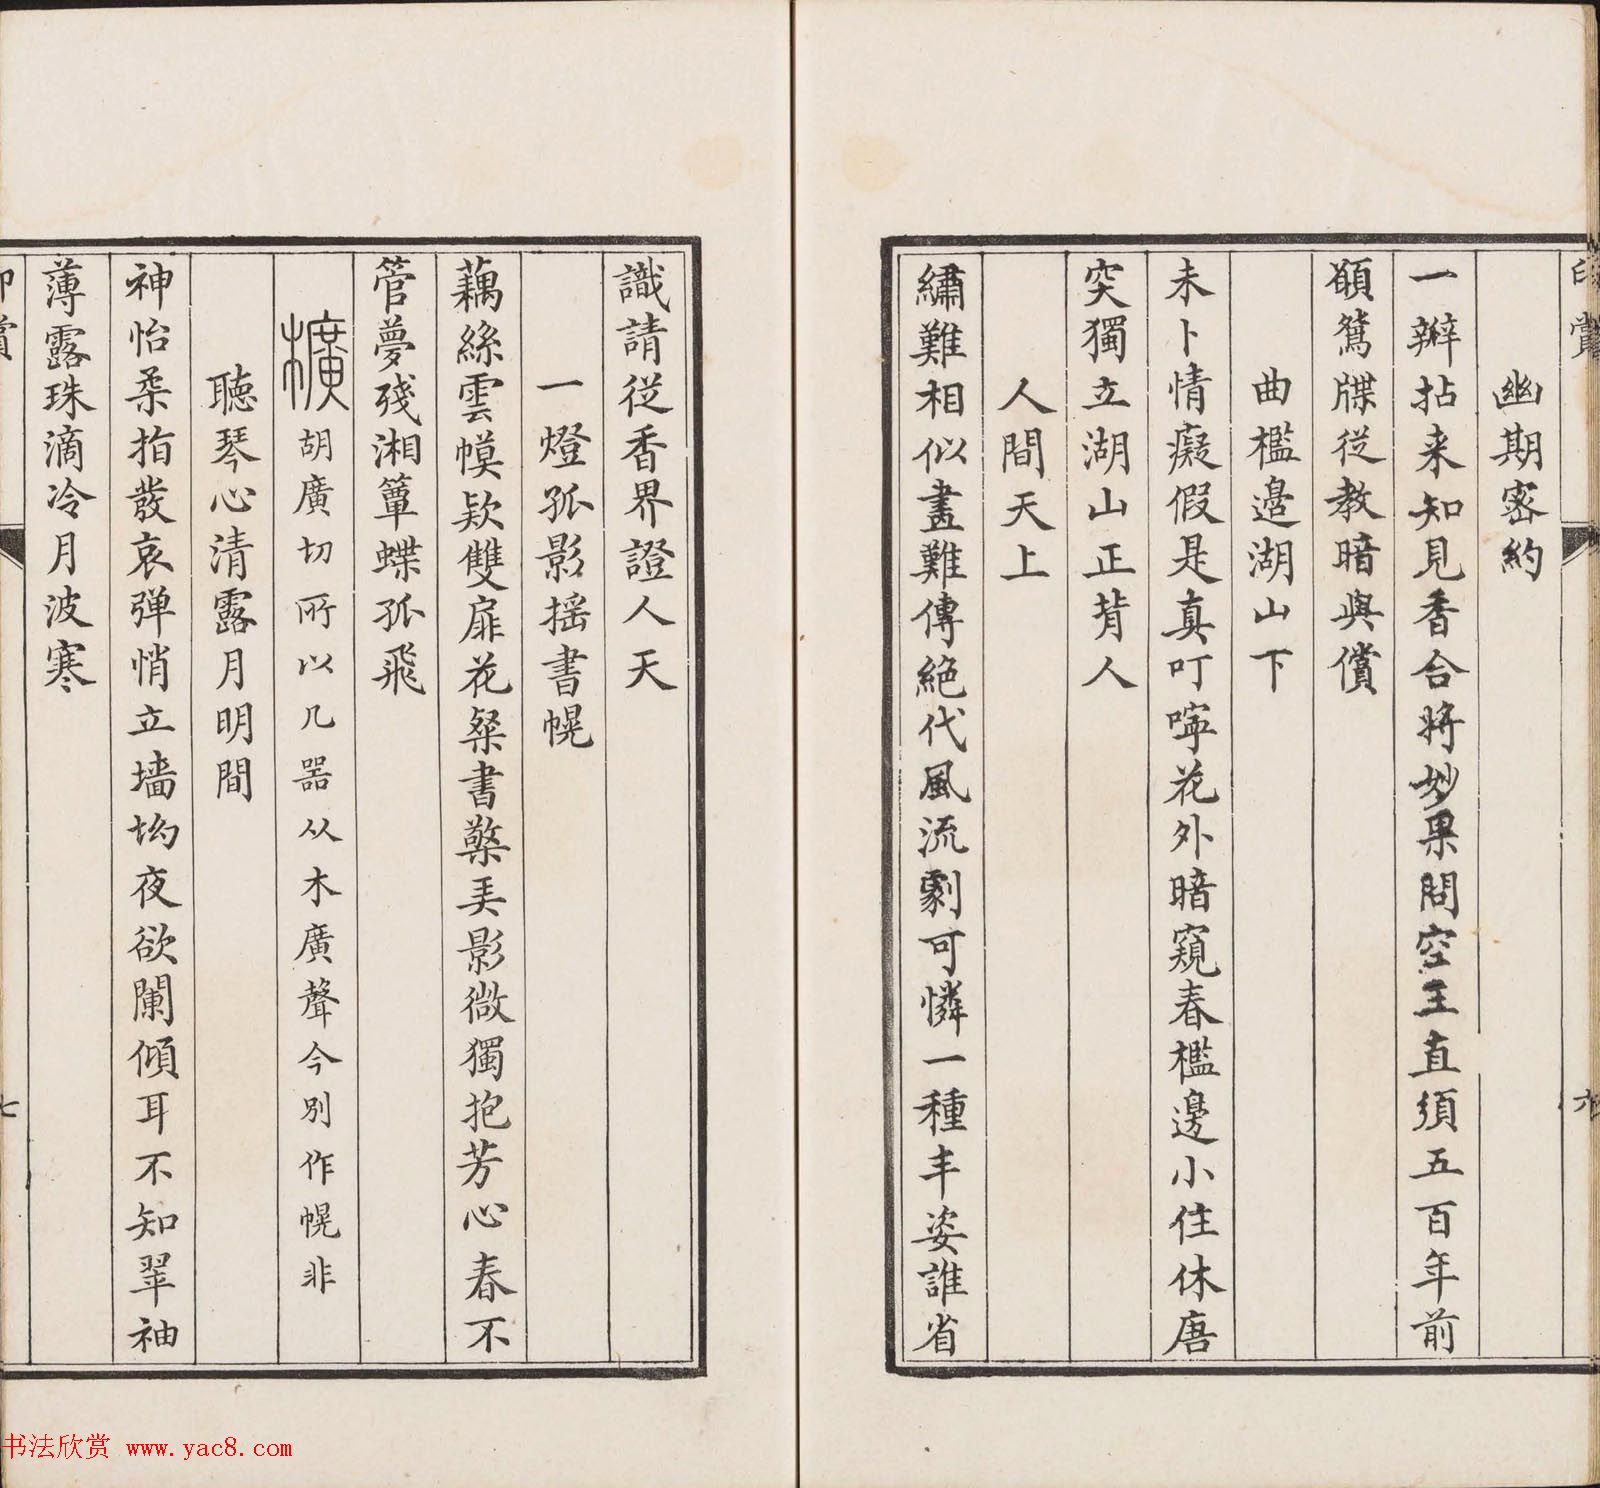 印賞
六
幽期密約
一瓣拈来知見香合將妙果問空王直須五百年前
願鴛牒從教暗與償
曲檻邊湖山下
未卜情癡假是真叮嚀花外暗窺春檻邊小住休唐
突獨立湖山正背人
人間天上
繡難相似畫難傳絕代風流劇可憐一種丰姿誰省
識請從香界證人天
一燈孤影摇書幌
藕絲雲幙欵雙扉花粲書檠美影微獨抱芳心春不
管夢殘湘簟蝶孤飛
櫎胡廣切所以几器从木廣聲今別作幌非
聽琴心清露月明間
神怡柔指發哀弹悄立墙坳夜欲闌傾耳不知翠袖
薄露珠滴冷月波寒
印賞
七
书法欣赏 www.yac8.com